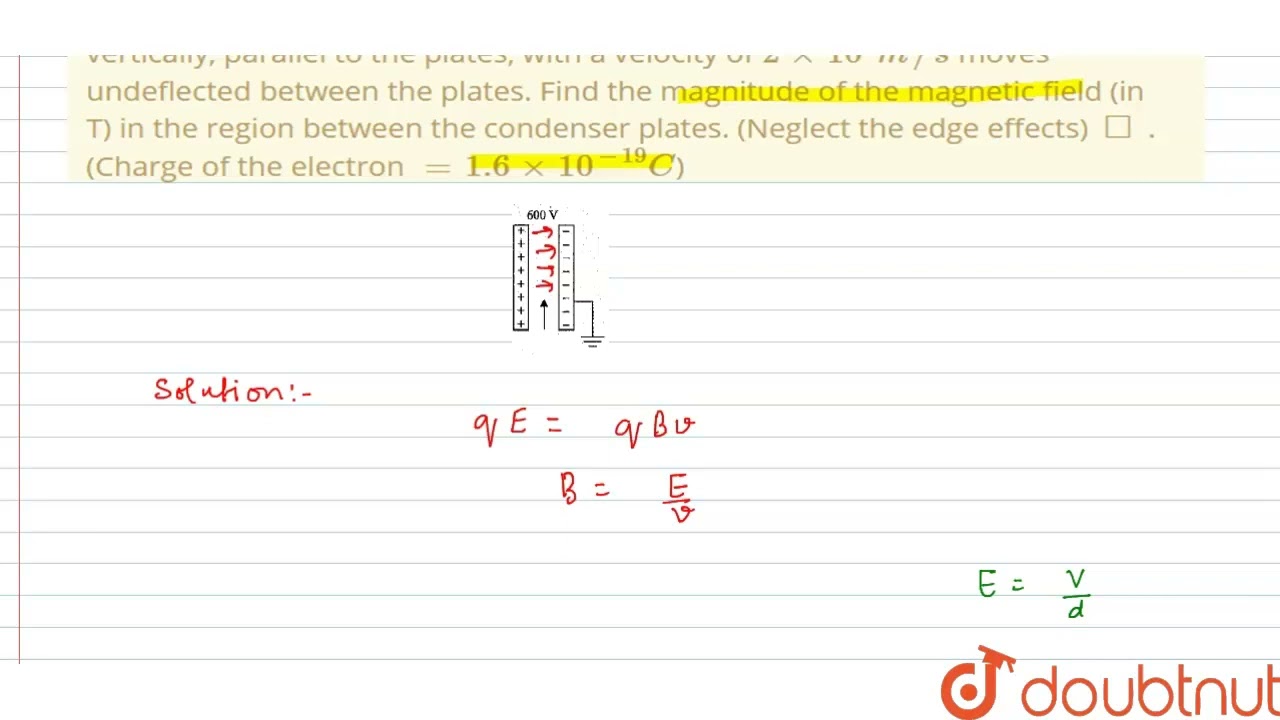 vertically, parallel to the plates, with a velocity of 2 × 10 m/s moves
undeflected between the plates. Find the magnitude of the magnetic field (in
T) in the region between the condenser plates. (Neglect the edge effects) □ .
(Charge of the electron = 1.6 × 10⁻¹⁹C)
600 V
Solution:-
qE = qBv
B = E/v
E = V/d
doubtnut